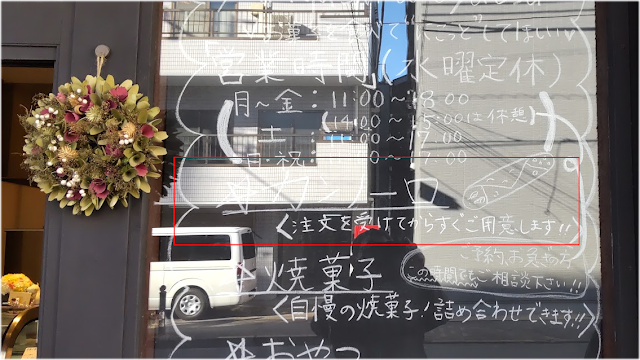 お菓子を食べて"にこっ"としてほしい♡
営業時間(水曜定休)
月〜金:11:00〜18:00
(14:00〜15:00は休憩)
土 11:00〜17:00
日・祝: 〜17:00
カンノーロ
<注文を受けてからすぐご用意します!!
ご予約、お急ぎの方
この時間でもご相談下さい!!
焼菓子
<自慢の焼菓子!詰め合わせできます!!>
おやつ